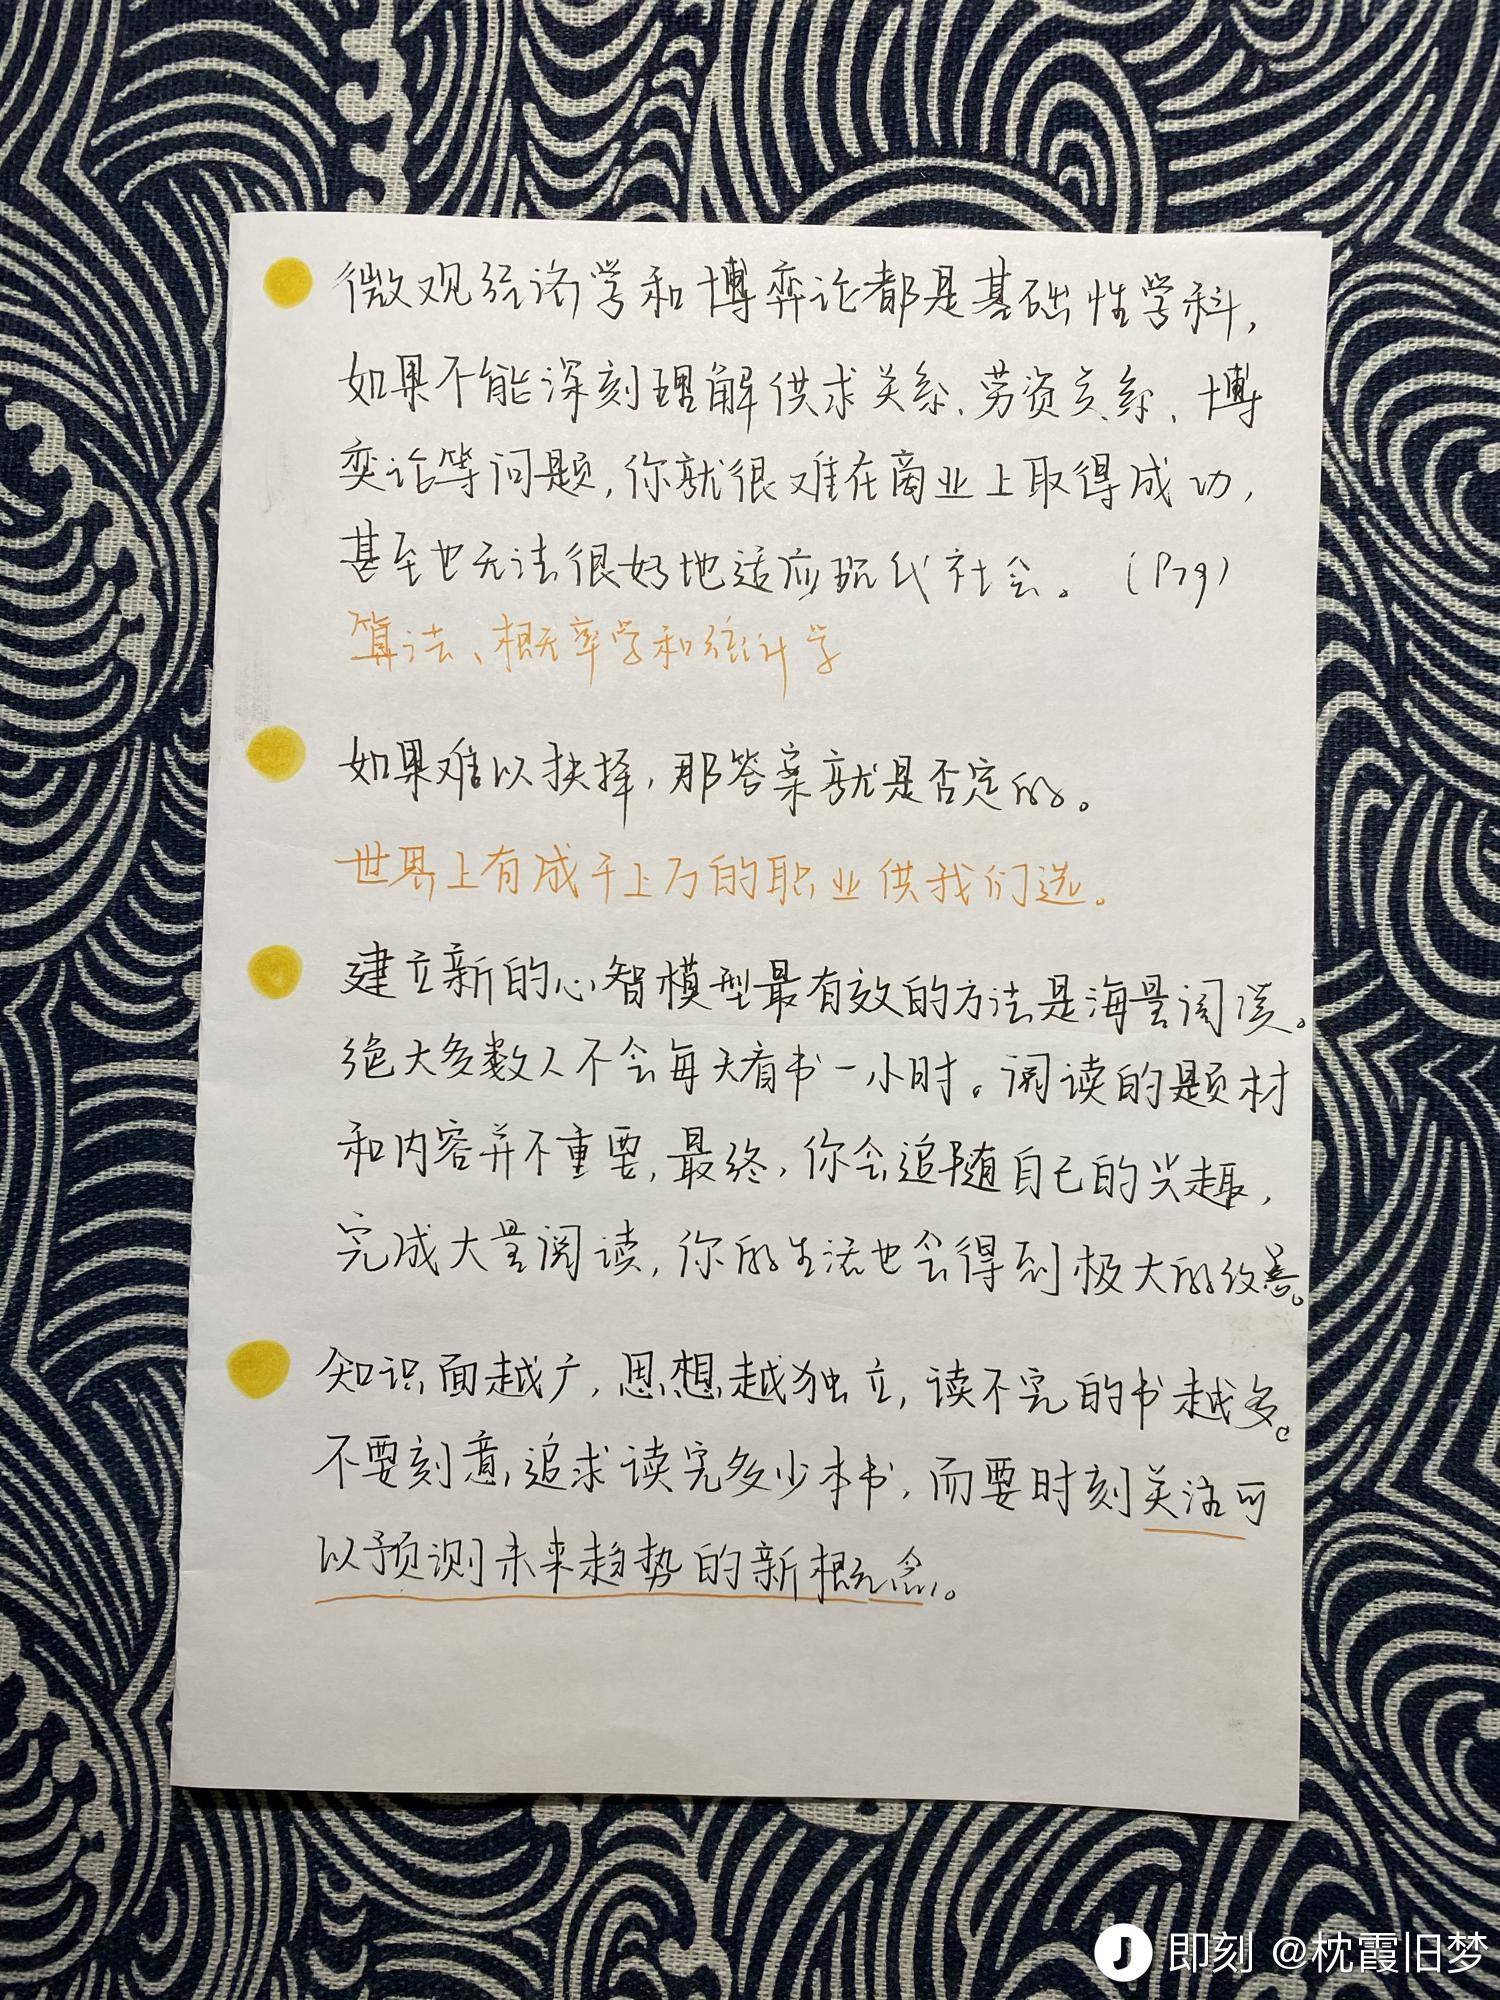 微观经济学和博弈论都是基础性学科，
如果不能深刻理解供求关系、劳资关系、博
弈论等问题，你就很难在商业上取得成功，
甚至也无法很好地适应现代社会。（P79）
算法、概率学和统计学
如果难以抉择，那答案就是否定的。
世界上有成千上万的职业供我们选。
建立新的心智模型最有效的方法是海量阅读。
绝大多数人不会每天看书一小时。阅读的题材
和内容并不重要，最终，你会追随自己的兴趣，
完成大量阅读，你的生活也会得到极大的改善。
知识面越广，思想越独立，读不完的书越多。
不要刻意追求读完多少本书，而要时刻关注可
以预测未来趋势的新概念。
即刻 @枕霞旧梦